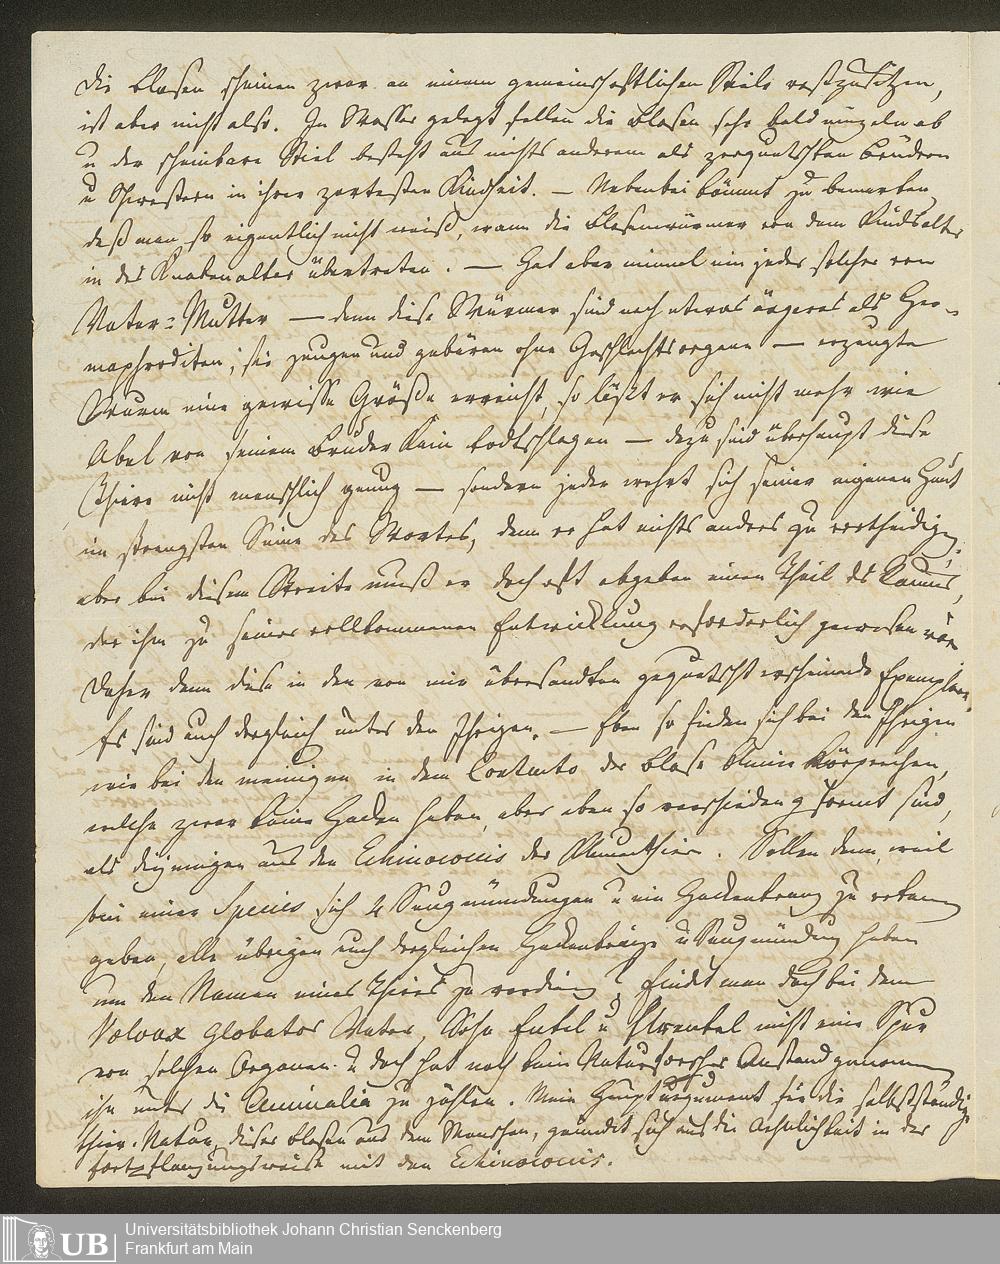 die Blasen scheinen zwar an einem gemeinschaftlichen Stiele vestzusitzen,
ist aber nicht also. In Wasser gelegt fallen die Blasen sehr bald einzeln ab
u der scheinbare Stiel besteht aus nichts anderem als zerquetschten Brüdern
u Schwestern in ihrer zartesten Kindheit. — Nebenbei kömmt zu bemerken
daß man so eigentlich nicht weiß, wann die Blasenwürmer von dem Kindsalter
in das Knabenalter übertreten. — Hat aber einmal ein jeder solcher von
Vater-Mutter — denn diese Würmer sind noch etwas ärgeres als Her-
maphroditen; sie zeugen und gebären ohne Geschlechtsorgane — erzeugte
Wurm eine gewisse Größe erreicht, so läßt er sich nicht mehr wie
Abel von seinem Bruder Kain todtschlagen — dazu sind überhaupt diese
Thiere nicht menschlich genug — sondern jeder wehrt sich seiner eigenen Haut
im strengsten Sinne des Wortes, denn er hat nichts anders zu vertheidigen;
aber bei diesem Streite muß er doch oft abgeben einen Theil des Raumes,
der ihm zu seiner vollkommenen Entwicklung erforderlich gewesen wär
Daher denn diese in den von mir übersandten gequetscht erscheinende Exemplare.
Es sind auch dergleich unter den Ihrigen. — Eben so finden sich bei den Ihrigen
wie bei den meinigen in dem Contento der Blase kleine Körperchen,
welche zwar keine Haken haben, aber eben so verschieden geformt sind,
als diejenigen aus den Echinococcis der Thiere. Sollen denn, weil
bei einer Species sich 4 Saugmündungen u ein Hackenkranz zu erkennen
geben, alle übrigen auch dergleichen Hackenkränze u Saugmündung haben
um den Namen eines Thiers zu verdienen? Findet man doch bei dem
Volvox globator Vater, Sohn Enkel u Urenkel nicht eine Spur
von solchen Organen. u doch hat noch kein Naturforscher Anstand genommen
ihn unter die Animalia zu zählen. Mein Hauptargument für die selbstständige
Thier-Natur dieser Blasen aus dem Menschen, gründet sich auf die Aehnlichkeit in der
Fortpflanzungsweise mit den Echinococcis.
Universitätsbibliothek Johann Christian Senckenberg
Frankfurt am Main
UB